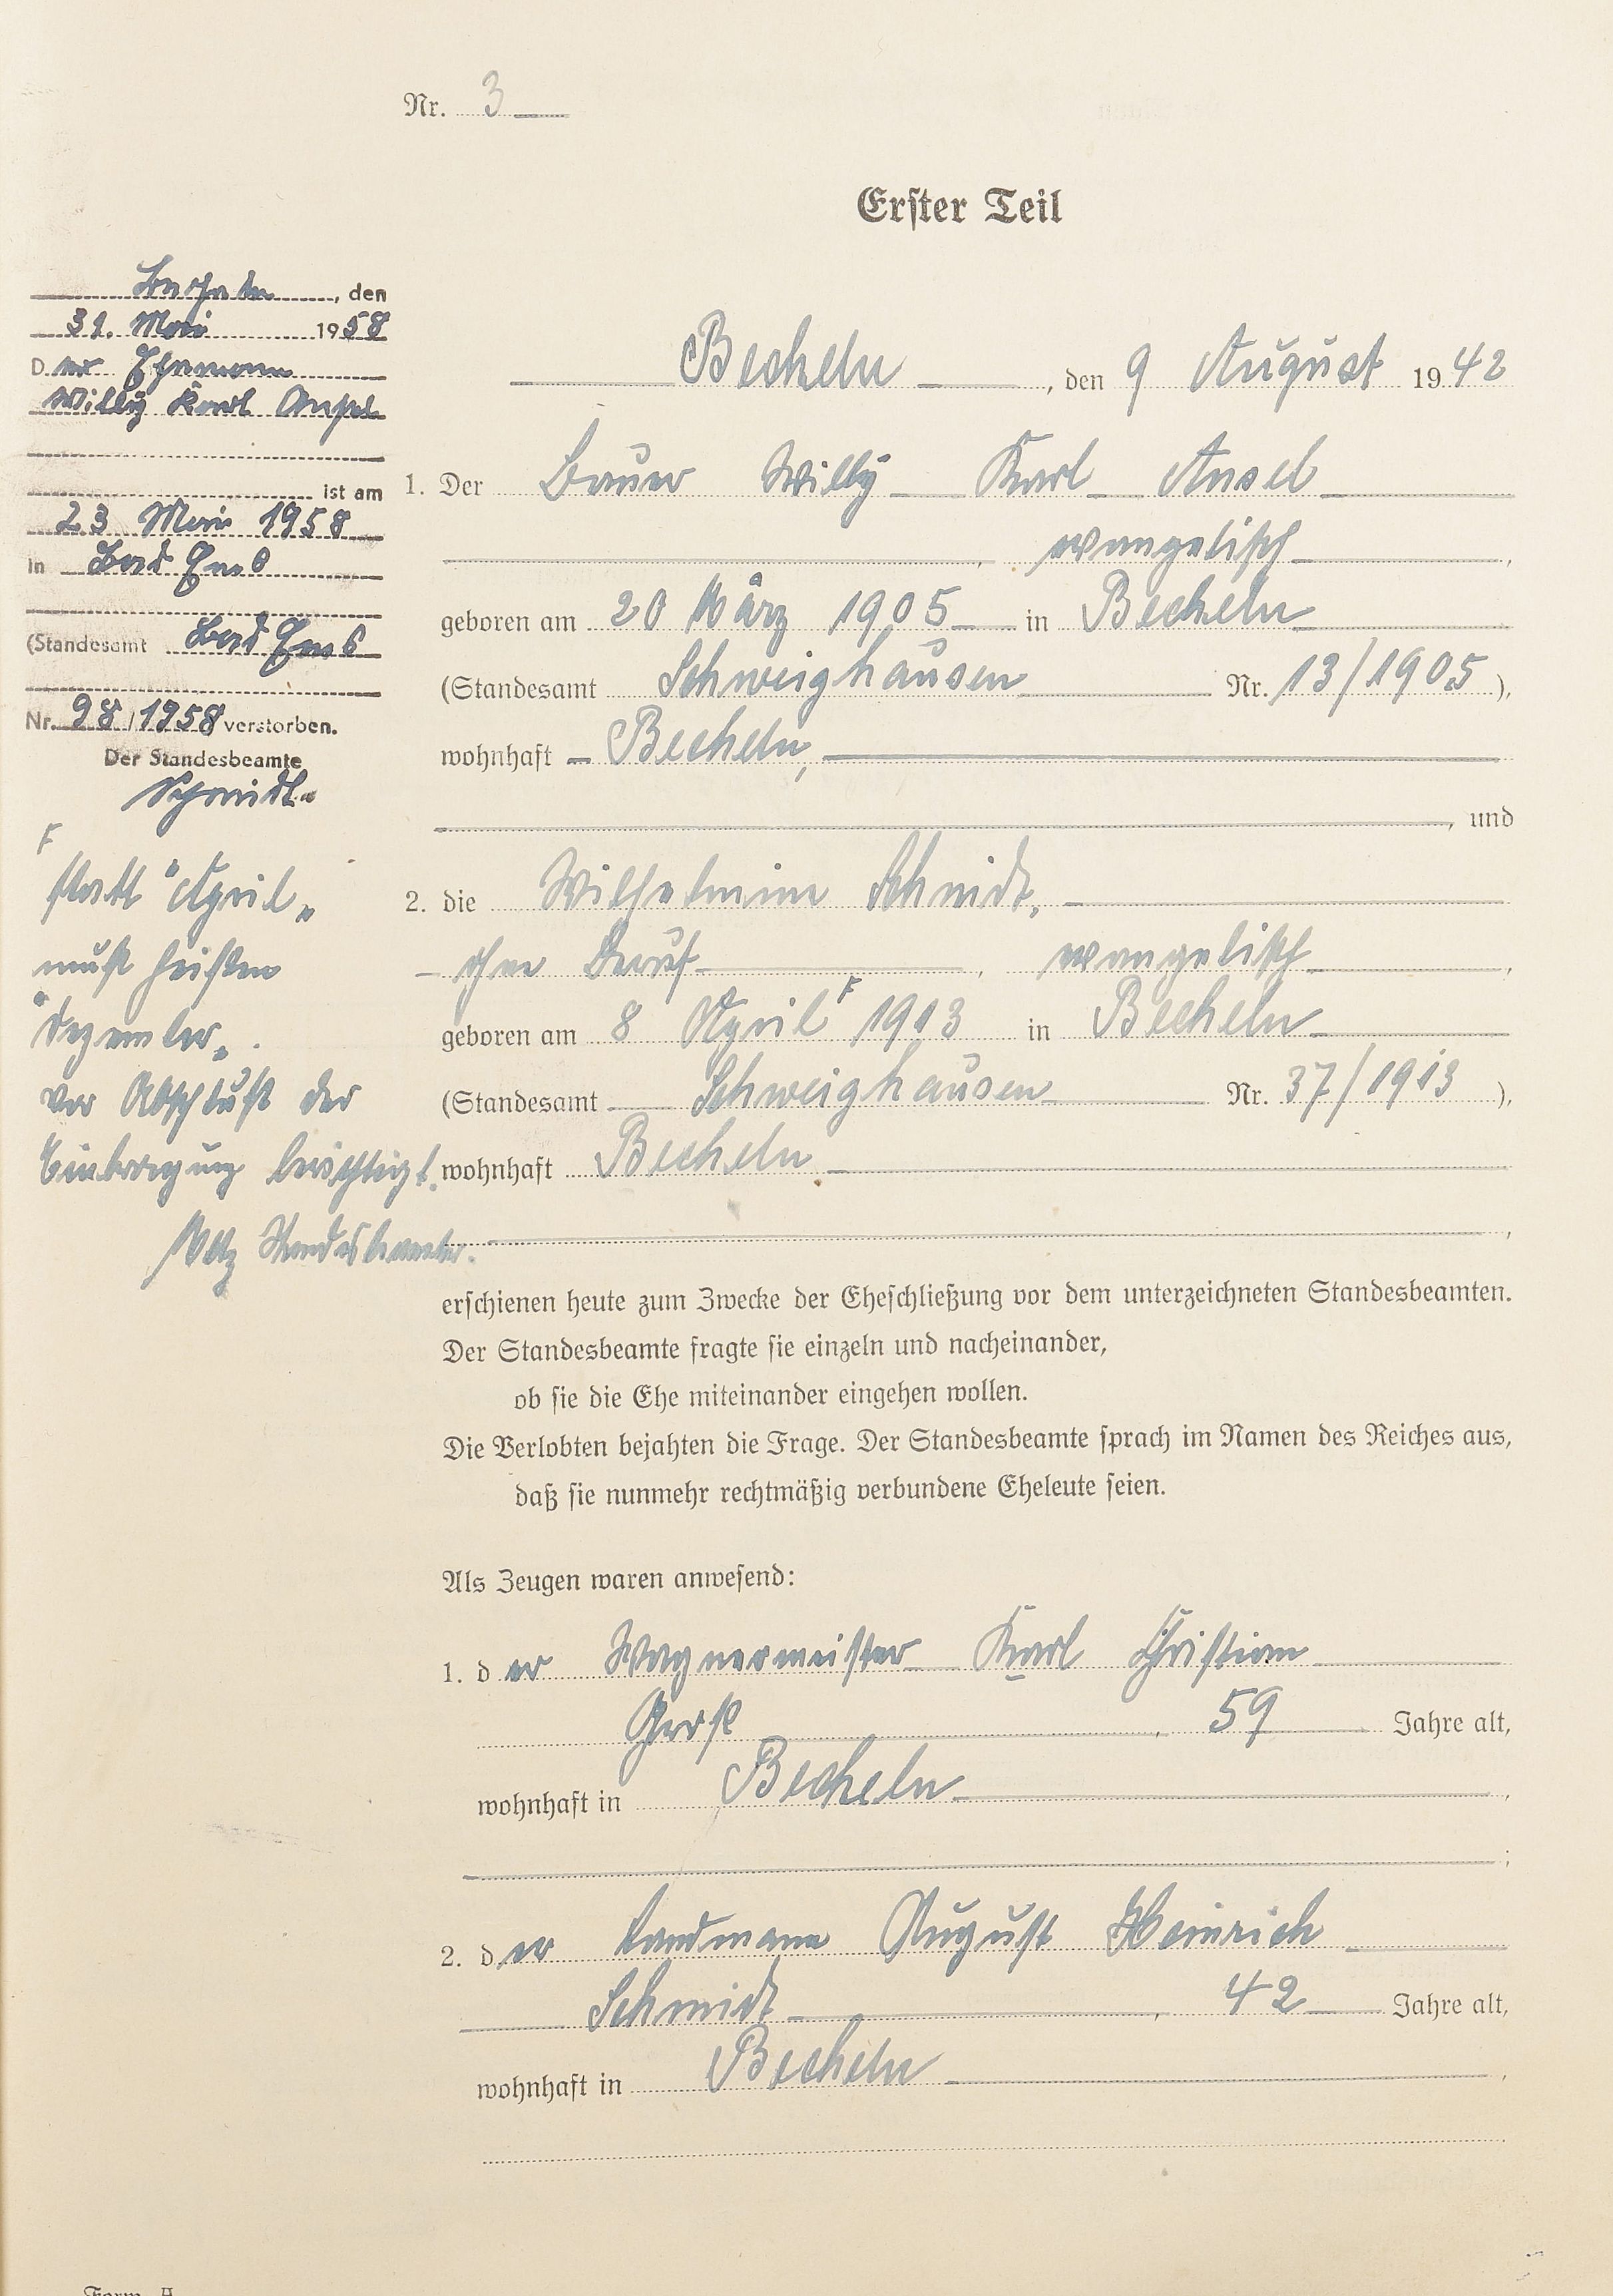 Nr. 3
Erster Teil
Becheln, den
31. Mai 1958
Der Ehemann
Willy Karl Ansel
ist am
23 Mai 1958
in Bad Ems
(Standesamt Bad Ems
Nr. 98/1958 verstorben.
Der Standesbeamte
Schmidt
F
statt "April"
muß heißen
"Dezember".
vor Abschluß der
Eintragung berichtigt.
Standesbeamter.
Becheln, den 9 August 1942
1. Der Bauer Willy Karl Ansel
, evangelisch,
geboren am 20 März 1905 in Becheln
(Standesamt Schweighausen Nr. 13/1905),
wohnhaft Becheln,
, und
2. die Wilhelmine Schmidt,
ohne Beruf, evangelisch,
geboren am 8 April F 1913 in Becheln
(Standesamt Schweighausen Nr. 37/1913),
wohnhaft Becheln
,
erschienen heute zum Zwecke der Eheschließung vor dem unterzeichneten Standesbeamten.
Der Standesbeamte fragte sie einzeln und nacheinander,
ob sie die Ehe miteinander eingehen wollen.
Die Verlobten bejahten die Frage. Der Standesbeamte sprach im Namen des Reiches aus,
daß sie nunmehr rechtmäßig verbundene Eheleute seien.
Als Zeugen waren anwesend:
1. der Wagnermeister Karl Christian
Groß, 59 Jahre alt,
wohnhaft in Becheln,
;
2. der Landmann August Heinrich
Schmidt, 42 Jahre alt,
wohnhaft in Becheln,